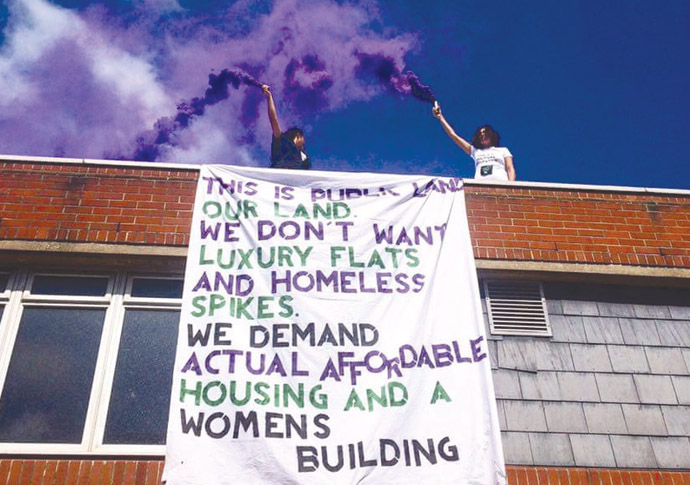 THIS IS PUBLIC LAND
OUR LAND.
WE DON'T WANT
LUXURY FLATS
AND HOMELESS
SPIKES.
WE DEMAND
ACTUAL AFFORDABLE
HOUSING AND A
WOMENS
BUILDING